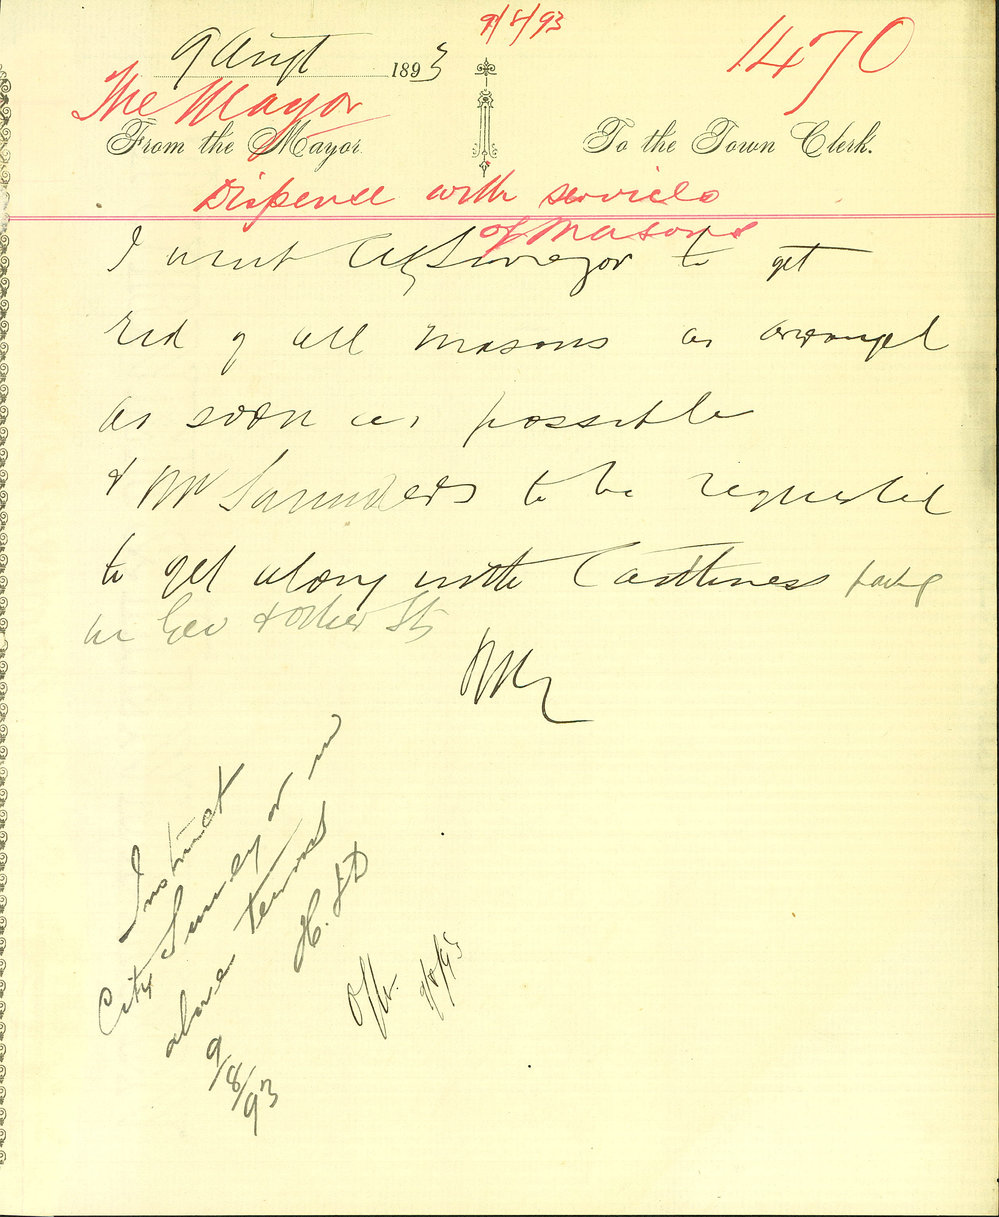 9/8/93
1470
9 Augt 1893
The Mayor
From the Mayor
To the Town Clerk.
Dispense with services
of Masons
I want City Surveyor to get
rid of all masons as arranged
as soon as possible
& Mr Saunders to be requested
to get along with Castlines
in Geo & other Sts
Instruct
City Surveyor in
above terms
H.
9/8/93
9/8/93